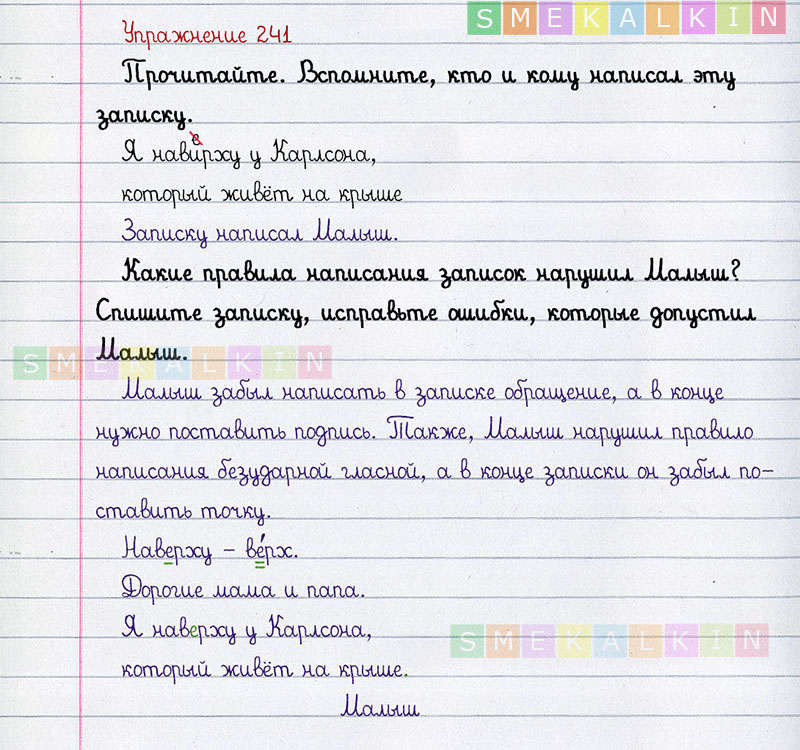 SMEKALKIN
Упражнение 241
Прочитайте. Вспомните, кто и кому написал эту
записку.
е
Я навирху у Карлсона,
который живёт на крыше
Записку написал Малыш.
Какие правила написания записок нарушил Малыш?
Спишите записку, исправьте ошибки, которые допустил
SMEKALKIN
Малыш.
Малыш забыл написать в записке обращение, а в конце
нужно поставить подпись. Также, Малыш нарушил правило
написания безударной гласной, а в конце записки он забыл по-
ставить точку.
Наверху – ве́рх.
Дорогие мама и папа.
Я наверху у Карлсона,
SMEKALKIN
который живёт на крыше.
Малыш